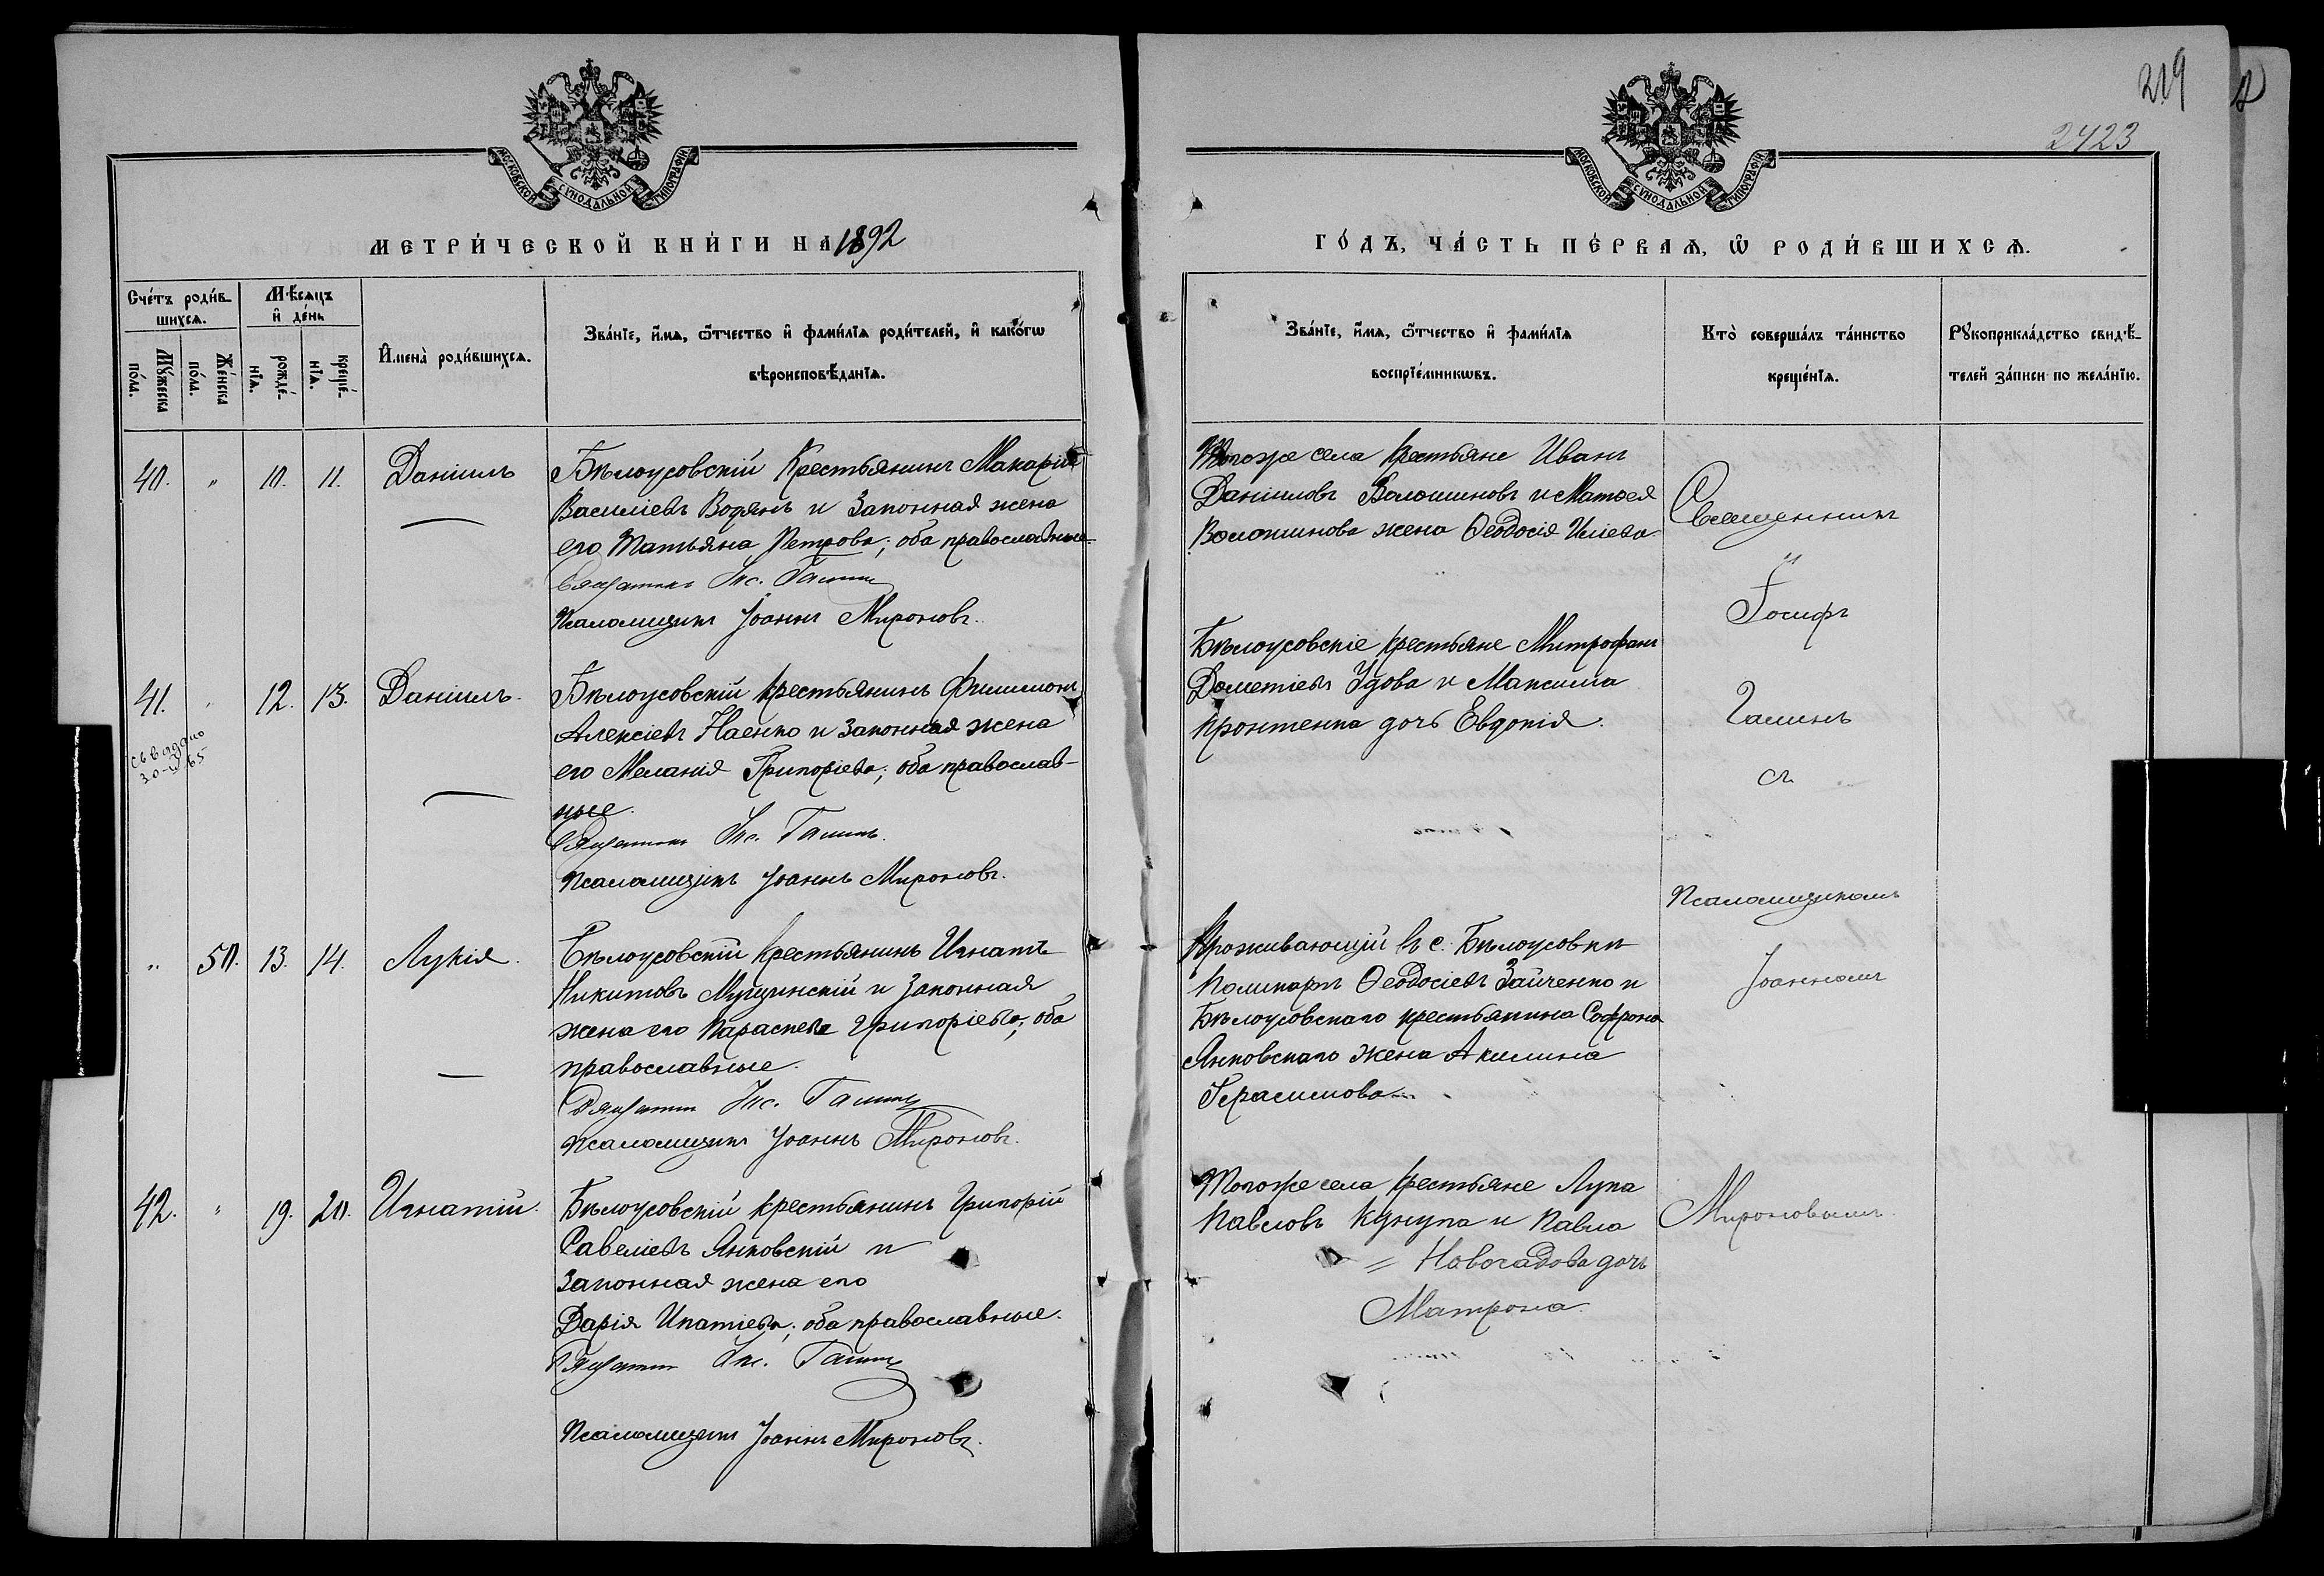 219
2423
МОСКОВСКОЙ СѴНОДАЛЬНОЙ ТИПОГРАФІИ
МОСКОВСКОЙ СѴНОДАЛЬНОЙ ТИПОГРАФІИ
МЕТРИ́ЧЕСКОЙ КНИ́ГИ НА 1892
ГО́ДЪ, ЧА́СТЬ ПЕ́РВАѦ, Ѿ РОДИ́ВШИХСѦ.
Сче́тъ роди́в-
шихсѧ.
Мꙋ́жеска по́ла.
Же́нска по́ла.
Мѣ́сѧцъ
и҆ де́нь
рожде́-
нїѧ.
креще́-
нїѧ.
И҆мена̀ роди́вшихсѧ.
Зва́нїе, и҆́мѧ, ѻ҆́тчество и҆ фами́лїѧ роди́телей, и҆ како́гѡ
вѣроисповѣ́данїѧ.
Зва́нїе, и҆́мѧ, ѻ҆́тчество и҆ фами́лїѧ
воспрїе́мникѡвъ.
Кто̀ соверша́лъ та́инство
креще́нїѧ.
Рꙋкоприкла́дство свидѣ́-
телей за́писи по жела́нїю.
40. " 10. 11. Даніилъ
Бѣлоусовскій Крестьянинъ Макарій
Василіевъ Водянъ и законная жена
его Татьяна Петрова; оба православные.
Іос. Галинъ
Псаломщикъ Іоаннъ Мироновъ.
Тогоже села Крестьяне Иванъ
Даніиловъ Волошиновъ и Матѳея
Волошинова жена Ѳеодосія Иліева
Священникъ
Іосифъ
Галинъ
съ
Псаломщикомъ
Іоанномъ
Мироновымъ.
41. " 12. 13. Даніилъ.
30-V 65
Бѣлоусовскій крестьянинъ Филимонъ
Алексіевъ Наенко и законная жена
его Меланія Григоріева; оба православ-
ные.
Іос. Галинъ.
Псаломщикъ Іоаннъ Мироновъ.
Бѣлоусовскіе крестьяне Митрофанъ
Дометіевъ Удова и Максима
дочь Евдокія.
" 50. 13. 14. Лукія.
Бѣлоусовскій Крестьянинъ Игнатъ
Никитовъ и Законная
жена его Параскева Григоріева; оба
православные.
Іос. Галинъ
Псаломщикъ Іоаннъ Мироновъ.
Проживающій въ с. Бѣлоусовкѣ
Поликарпъ Ѳеодосіевъ Зайченко и
Бѣлоусовскаго крестьянина Софрона
Янковскаго жена Акилина
Герасимова
42. " 19. 20. Игнатій.
Бѣлоусовскій крестьянинъ Григорій
Савеліевъ Янковскій и
Законная жена его
Дарія Ипатіева; оба православные.
Іос. Галинъ
Псаломщикъ Іоаннъ Мироновъ.
Тогоже села Крестьяне Лука
Павловъ и Павла
= дочь
Матрона.